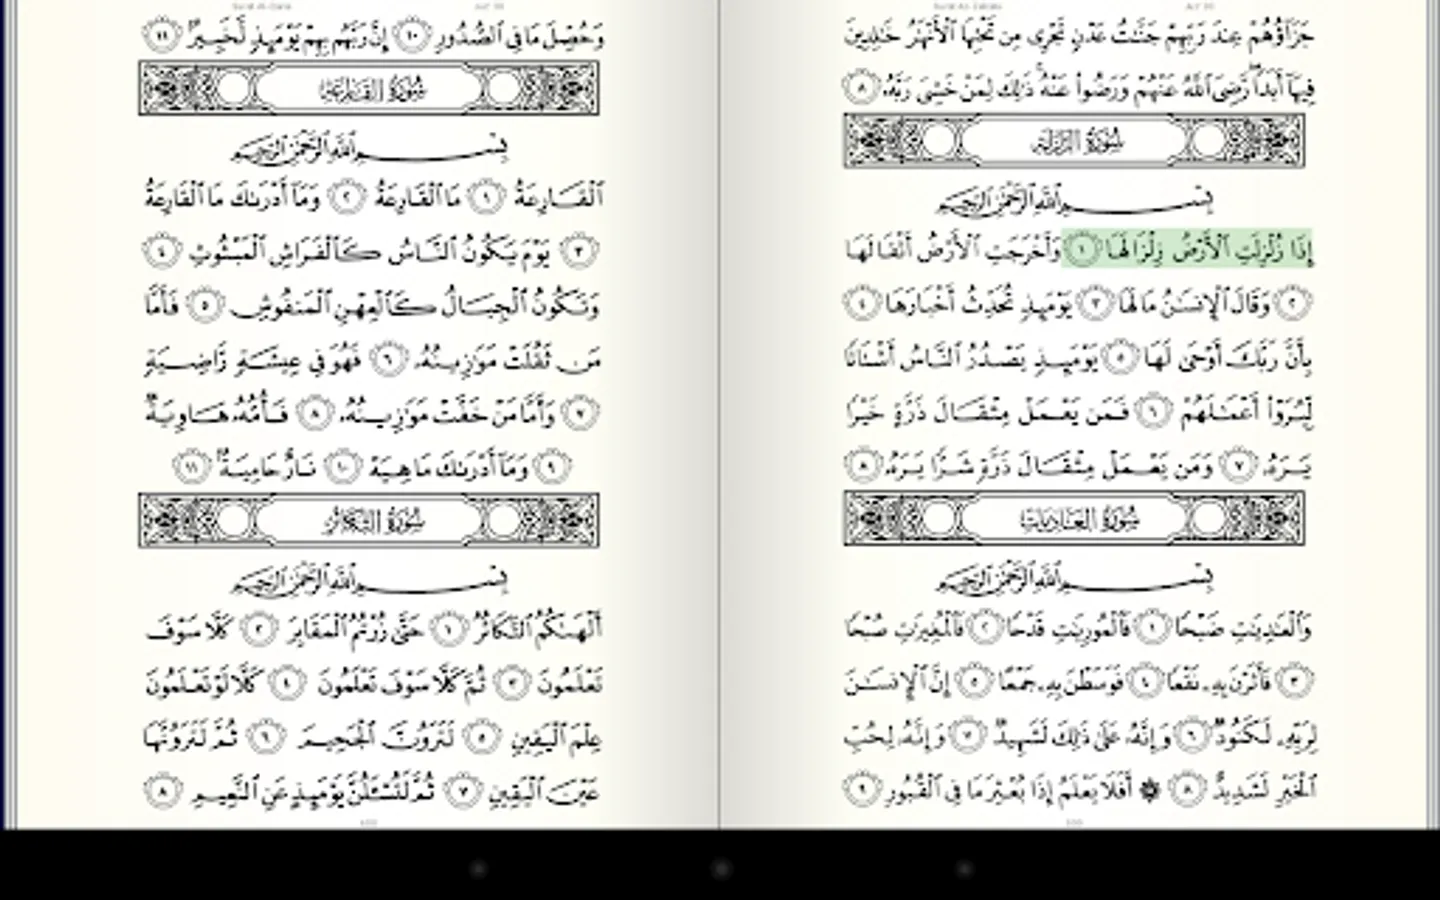 جَزَآؤُهُمْ عِندَ رَبِّهِمْ جَنَّـٰتُ عَدْنٍ تَجْرِى مِن تَحْتِهَا ٱلْأَنْهَـٰرُ خَـٰلِدِينَ
فِيهَآ أَبَدًا ۖ رَّضِىَ ٱللَّهُ عَنْهُمْ وَرَضُوا۟ عَنْهُ ۚ ذَٰلِكَ لِمَنْ خَشِىَ رَبَّهُۥ ٨
سُورَةُ الزَّلْزَلَةِ
بِسْمِ ٱللَّهِ ٱلرَّحْمَـٰنِ ٱلرَّحِيمِ
إِذَا زُلْزِلَتِ ٱلْأَرْضُ زِلْزَالَهَا ١ وَأَخْرَجَتِ ٱلْأَرْضُ أَثْقَالَهَا
٢ وَقَالَ ٱلْإِنسَـٰنُ مَا لَهَا ٣ يَوْمَئِذٍ تُحَدِّثُ أَخْبَارَهَا ٤
بِأَنَّ رَبَّكَ أَوْحَىٰ لَهَا ٥ يَوْمَئِذٍ يَصْدُرُ ٱلنَّاسُ أَشْتَاتًا
لِّيُرَوْا۟ أَعْمَـٰلَهُمْ ٦ فَمَن يَعْمَلْ مِثْقَالَ ذَرَّةٍ خَيْرًا
يَرَهُۥ ٧ وَمَن يَعْمَلْ مِثْقَالَ ذَرَّةٍ شَرًّا يَرَهُۥ ٨
سُورَةُ العَادِيَاتِ
بِسْمِ ٱللَّهِ ٱلرَّحْمَـٰنِ ٱلرَّحِيمِ
وَٱلْعَـٰدِيَـٰتِ ضَبْحًا ١ فَٱلْمُورِيَـٰتِ قَدْحًا ٢ فَٱلْمُغِيرَٰتِ صُبْحًا
٣ فَأَثَرْنَ بِهِۦ نَقْعًا ٤ فَوَسَطْنَ بِهِۦ جَمْعًا ٥ إِنَّ ٱلْإِنسَـٰنَ
لِرَبِّهِۦ لَكَنُودٌ ٦ وَإِنَّهُۥ عَلَىٰ ذَٰلِكَ لَشَهِيدٌ ٧ وَإِنَّهُۥ لِحُبِّ
ٱلْخَيْرِ لَشَدِيدٌ ٨ ۞ أَفَلَا يَعْلَمُ إِذَا بُعْثِرَ مَا فِى ٱلْقُبُورِ ٩
وَحُصِّلَ مَا فِى ٱلصُّدُورِ ١٠ إِنَّ رَبَّهُم بِهِمْ يَوْمَئِذٍ لَّخَبِيرٌ ١١
سُورَةُ القَارِعَةِ
بِسْمِ ٱللَّهِ ٱلرَّحْمَـٰنِ ٱلرَّحِيمِ
ٱلْقَارِعَةُ ١ مَا ٱلْقَارِعَةُ ٢ وَمَآ أَدْرَىٰكَ مَا ٱلْقَارِعَةُ
٣ يَوْمَ يَكُونُ ٱلنَّاسُ كَٱلْفَرَاشِ ٱلْمَبْثُوثِ ٤
وَتَكُونُ ٱلْجِبَالُ كَٱلْعِهْنِ ٱلْمَنفُوشِ ٥ فَأَمَّا
مَن ثَقُلَتْ مَوَٰزِينُهُۥ ٦ فَهُوَ فِى عِيشَةٍ رَّاضِيَةٍ
٧ وَأَمَّا مَنْ خَفَّتْ مَوَٰزِينُهُۥ ٨ فَأُمُّهُۥ هَاوِيَةٌ
٩ وَمَآ أَدْرَىٰكَ مَا هِيَهْ ١٠ نَارٌ حَامِيَةٌۢ ١١
سُورَةُ التَّكَاثُرِ
بِسْمِ ٱللَّهِ ٱلرَّحْمَـٰنِ ٱلرَّحِيمِ
أَلْهَىٰكُمُ ٱلتَّكَاثُرُ ١ حَتَّىٰ زُرْتُمُ ٱلْمَقَابِرَ ٢ كَلَّا سَوْفَ
تَعْلَمُونَ ٣ ثُمَّ كَلَّا سَوْفَ تَعْلَمُونَ ٤ كَلَّا لَوْ تَعْلَمُونَ
عِلْمَ ٱلْيَقِينِ ٥ لَتَرَوُنَّ ٱلْجَحِيمَ ٦ ثُمَّ لَتَرَوُنَّهَا
عَيْنَ ٱلْيَقِينِ ٧ ثُمَّ لَتُسْـَٔلُنَّ يَوْمَئِذٍ عَنِ ٱلنَّعِيمِ ٨